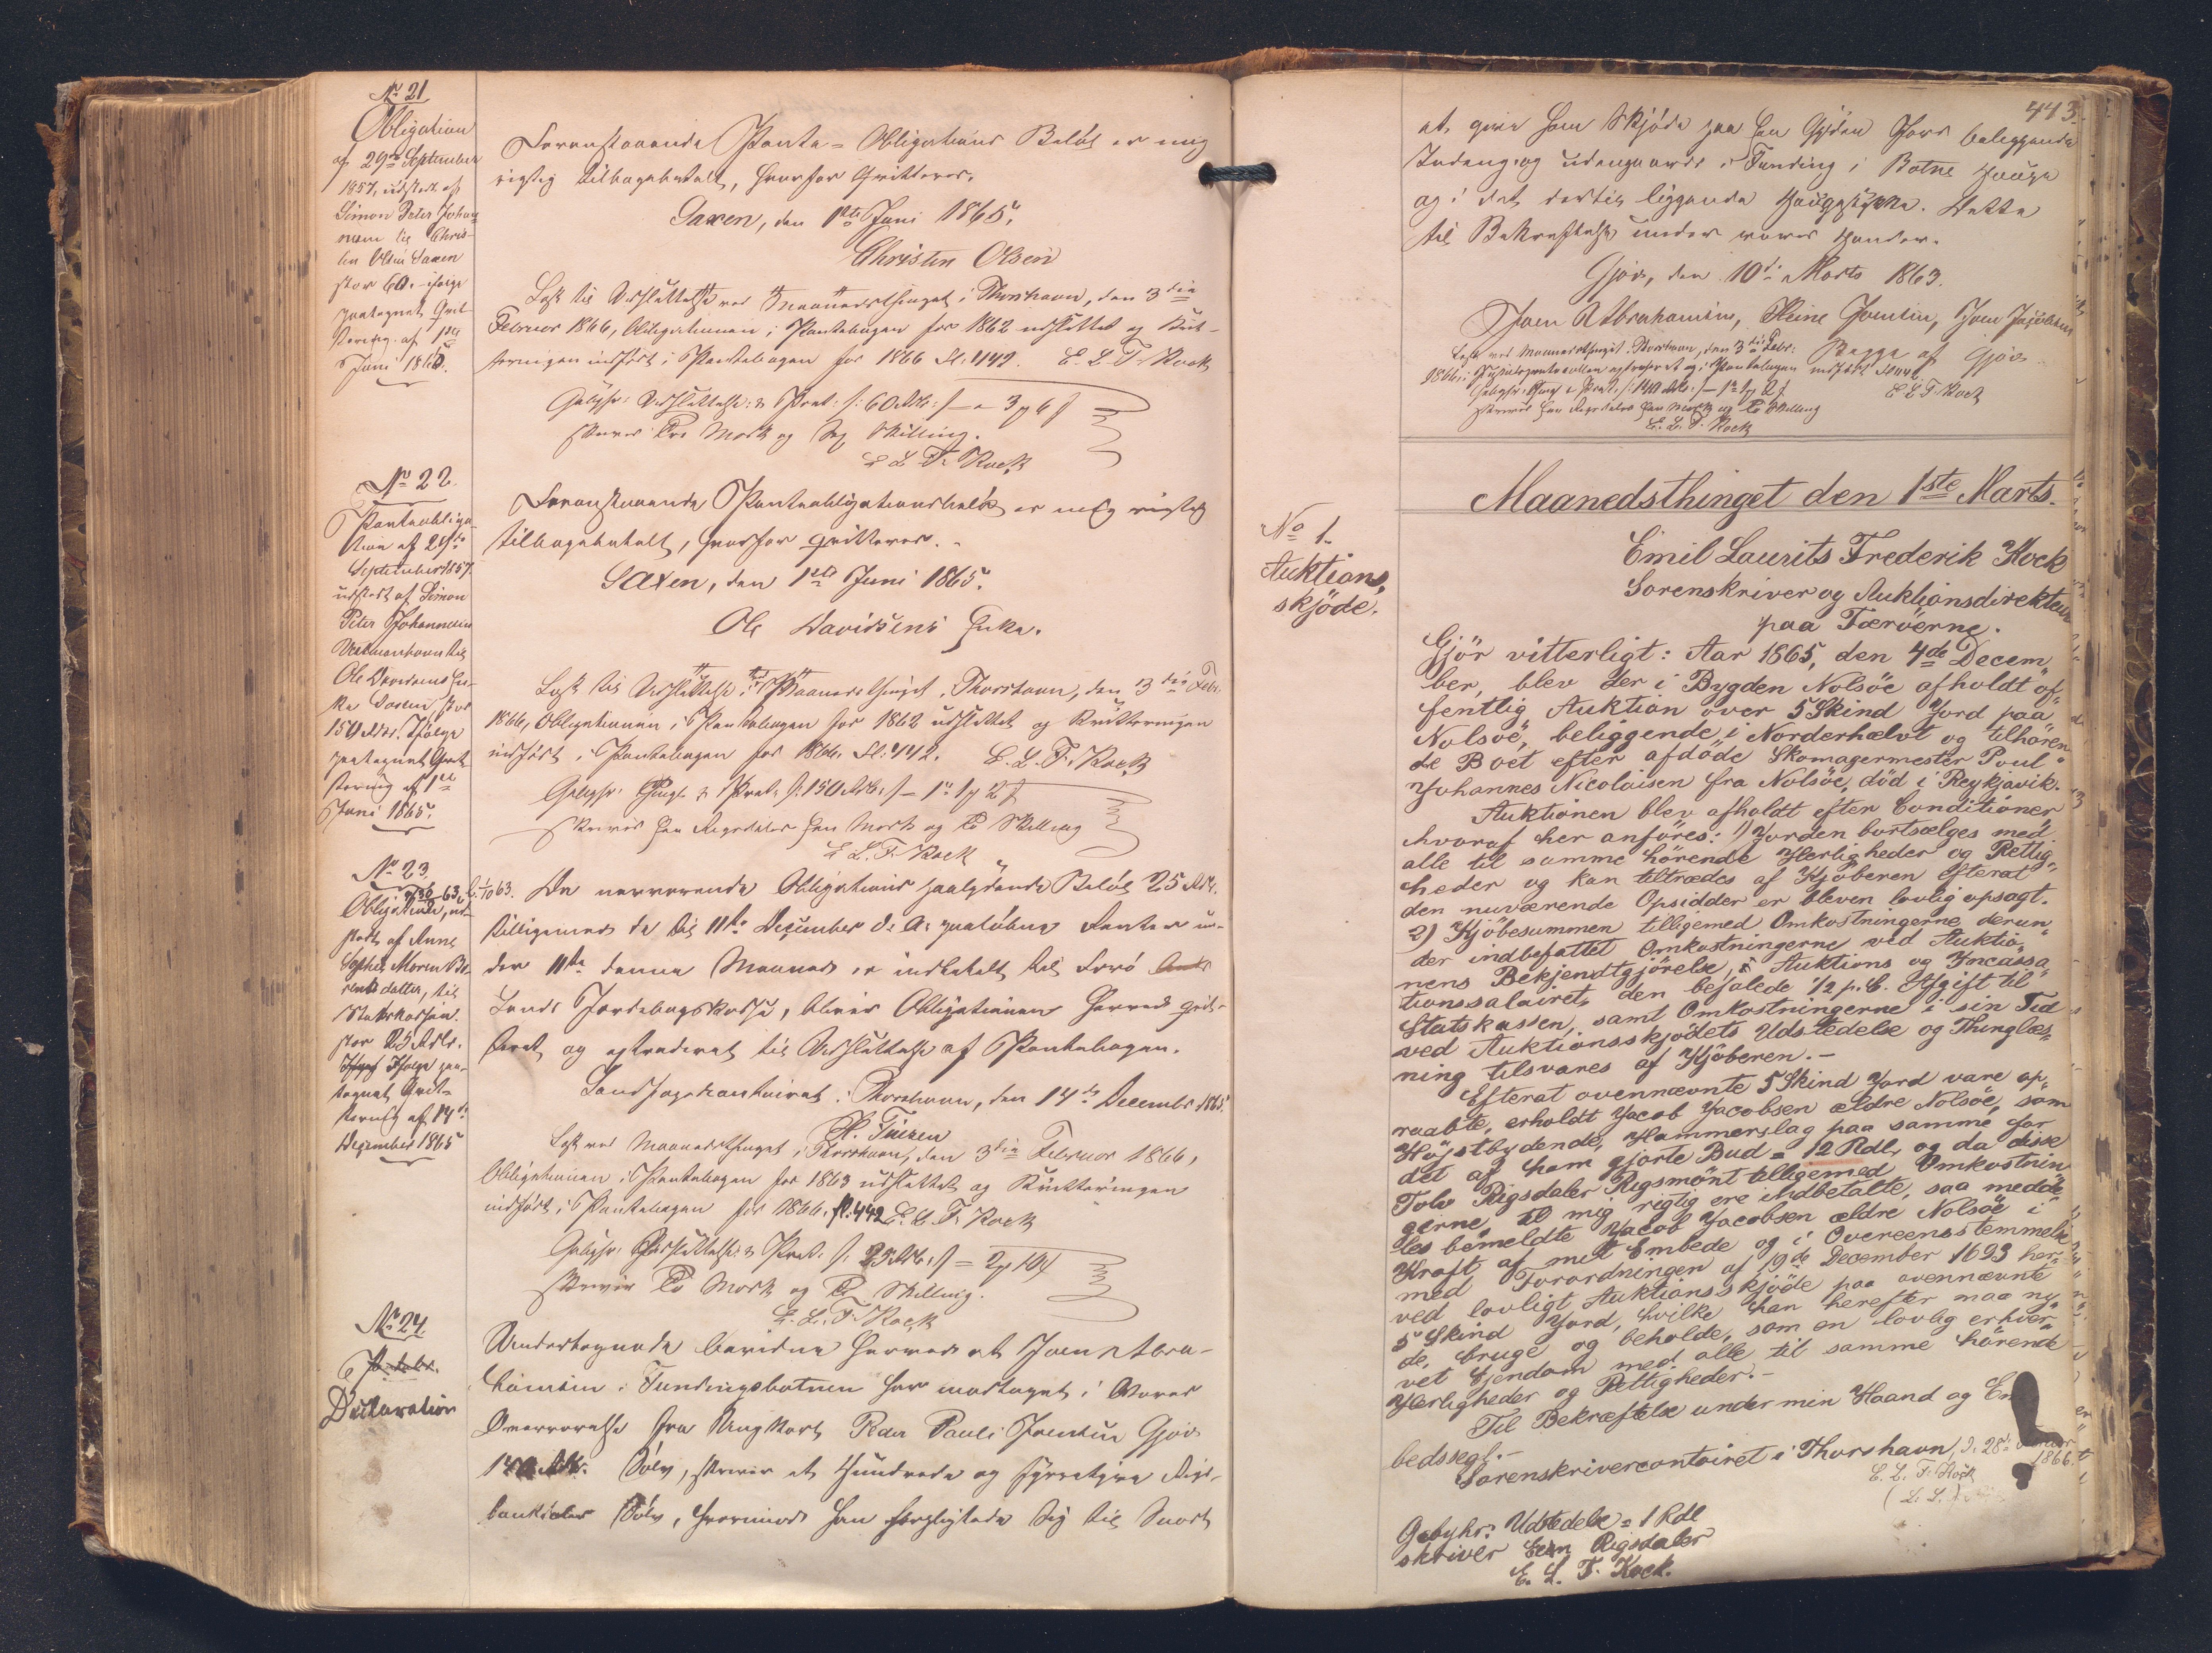 No 21
Obligation
af 29de September
1857, udstedt af
Simon Peter Johan-
nesen til Chris-
ten Olsen Saxen
stor 60.- ifølge
paategnet Qvit-
tering af 1ste
Juni 1865.
Foranstaaende Pante-Obligations Beløb er mig
rigtig tilbagebetalt, hvorfor qvitteres.
Saxen, den 1ste Juni 1865.
Christen Olsen
Læst til Udslettelse ved Maanedsthinget i Thorshavn, den 3die
Februar 1866, Obligationen i Pantebogen for 1862 udslettet og Kvit-
teringen indført i Pantebogen for 1866 Fl. 442. E. L. F. Kock
Gebyhr: Udslettelse: & Prot: /: 60 Rdl: /
skriver To Mark og Sex Skilling.
E. L. F. Kock
No 22.
Panteobliga-
tion af 29de
September 1857.
udstedt af Simon
Peter Johannesen
Vestmanhavn til
Ole Davidsens En-
ke Saxen stor
150 Rdl. Ifølge
paategnet Qvit-
tering af 1ste
Juni 1865.
Foranstaaende Panteobligationsbeløb er mig rigtig
tilbagebetalt, hvorfor qvitteres.
Saxen, den 1ste Juni 1865.
Ole Davidsens Enke.
Læst til Udslettelse ved Maanedsthinget i Thorshavn, den 3die Febr.
1866, Obligationen i Pantebogen for 1862 udslettet og Kvitteringen
indført i Pantebogen for 1866 Fl. 442. E. L. F. Kock
Gebyhr: Thingl. & Prot: /: 150 Rdl: /
skriver Een Rigsdaler Een Mark og To Skilling
E. L. F. Kock
No 23
Obligation, ud-
stedt af Anne
Sophie Maren Be-
rentsdatter, til
Statskassen.
stor 25 Rdlr.
Ifølge paa-
tegnet Qvit-
tering af 14de
December 1865
Da nærværende Obligations paalydende Beløb 25 Rdl.
tilligemed de til 11te December d. A. paaløbne Renter un-
der 11te denne Maaned er indbetalt til Færø Amts
Lands Jordebogskasse, bliver Obligationen herved qvit-
teret og extraderet til Udslettelse af Pantebogen.
Landfogedcontoiret i Thorshavn, den 14de December 1865.
H. Tüxen
Læst ved Maanedsthinget i Thorshavn, den 3die Februar 1866,
Obligationen i Pantebogen for 1863 udslettet og Kvitteringen
indført i Pantebogen for 1866. Fl. 442 E. L. F. Kock
Gebyhr: Udslettelse: & Prot: /: 25 Rdl: /
skriver To Mark og Ti Skilling.
E. L. F. Kock
No 24.
Declaration
Undertegnede bevidne herved at Joen Abra-
hamsen i Fundingsbotnen har modtaget i Vores
Overværelse fra Ungkarl Peder Pauli Joensen Gjov
140 Rdl. Sølv, skriver et Hundrede og fyrretyve Rigs-
bankdaler Sølv, hvorimod han forpligtede sig til snart
443.
at give ham Skjøde paa en Gylden Jord beliggende
Indeng og udengaards i Funding i Botne Hauge
og i det dertil liggende Haugstykke. Dette
til Bekræftelse under vores Hænder.
Gjov, den 10de Marts 1863.
Joen Abrahamsen, Heine Joensen, Joen Jacobsen
Begge af Gjov
Læst ved Maanedsthinget i Thorshavn, den 3die Febr:
1866, i Pantebogen indført
E. L. F. Kock
skriver Een Rigsdaler Een Mark og To Skilling
E. L. F. Kock
Maanedsthinget den 1ste Marts.
No 1.
Auktions„
skjöde.
Emil Laurits Frederik Kock
Sorenskriver og Auktionsdirekteur
paa Færöerne.
Gjör vitterligt: Aar 1865, den 4de Decem„
ber, blev der i Bygden Nolsöe afholdt of„
fentlig Auktion over 5 Skind Jord paa
Nolsöe, beliggende i Norderhælvt og tilhören„
de Boet efter afdöde Skomagermester Poul
Johannes Nicolaisen fra Nolsöe, död i Reykjavik.
Auktionen blev afholdt efter Conditioner
hvoraf her anföres: 1) Jorden bortsælges med
alle til samme hörende Herligheder og Rettig„
heder og kan tiltrædes af Kjöberen efterat
den nuværende Opsidder er bleven lovlig opsagt.
2) Kjöbesummen tilligemed Omkostningerne, derun„
der indbefattet Omkostningerne ved Auktio„
nens Bekjendtgjörelse, Auktions og Incassa„
tionssalairet, den befalede 1/2 p. C. Afgift til
Statskassen, samt Omkostningerne i sin Tid
ved Auktionsskjödets Udstedelse og Thinglæs„
ning tilsvares af Kjöberen.-
Efterat ovennævnte 5 Skind Jord vare op„
raabte, erholdt Jacob Jacobsen ældre Nolsöe, som
Höjstbydende, Hammerslag paa samme for
det af ham gjorte Bud = 12 Rdl, og da disse
Tolv Rigsdaler Rigsmönt tilligemed Omkostnin„
gerne til mig rigtig ere indbetalte, saa medde„
les bemeldte Jacob Jacobsen ældre Nolsöe i
Kraft af mit Embede og i Overeensstemmelse
med Forordningen af 19de December 1693 her„
ved lovligt Auktionsskjöde paa ovennævnte
5 Skind Jord, hvilke han herefter maa ny„
de, bruge og beholde, som en lovlig erhver„
vet Ejendom med alle til samme hörende
Herligheder og Rettigheder.-
Til Bekræftelse under min Haand og Em
bedssegl.-
Sorenskrivercontoiret i Thorshavn, d. 28de
1866.
E. L. F. Kock
(L. S.)
Gebyhr: Udstedelse = 1 Rdl
skriver Een Rigsdaler
E. L. F. Kock.